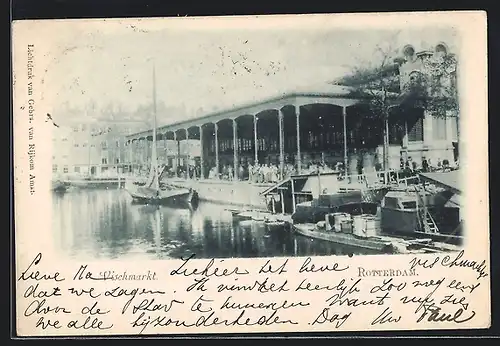 Lichtdruk van Gebrs. van Rijkom Amst.
Vischmarkt.
ROTTERDAM.
Lieve Ma hier het lieve vischmarkt
dat we zagen. Ik vind het heerlijk zoo nog eens
over de Stad te kunnen want nu zie
we alle bijzonderheden. Dag Uw Paul